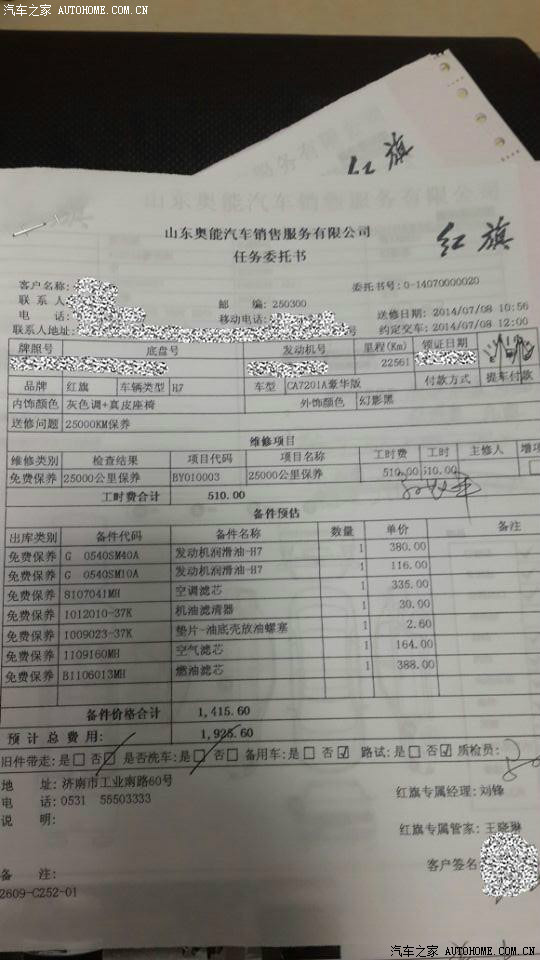 汽车之家 AUTOHOME.COM.CN
汽车之家 AUTOHOME.COM.CN
红旗
红旗
山东奥能汽车销售服务有限公司
任务委托书
委托书号:0-14070000020
客户名称:
联系人
邮 编: 250300
送修日期: 2014/07/08 10:56
电 话:
移动电话:
约定交车: 2014/07/08 12:00
联系人地址:
号
牌照号 底盘号 发动机号 里程(Km) 领证日期
22561
品牌 红旗 车辆类型 H7 车型 CA7201A豪华版 付款方式 提车付款
内饰颜色 灰色调+真皮座椅 外饰颜色 幻影黑
送修问题 25000KM保养
维修项目
维修类别 检查结果 项目代码 项目名称 工时费 工时 主修人 增项
免费保养 25000公里保养 BY010003 25000公里保养 510.00 510.00
工时费合计 510.00
备件预估
出库类别 备件代码 备件名称 数量 单价 备注
免费保养 G 0540SM40A 发动机润滑油-H7 1 380.00
免费保养 G 0540SM10A 发动机润滑油-H7 1 116.00
免费保养 8107041MH 空调滤芯 1 335.00
免费保养 1012010-37K 机油滤清器 1 30.00
免费保养 1009023-37K 垫片-油底壳放油螺塞 1 2.60
免费保养 1109160MH 空气滤芯 1 164.00
免费保养 B1106013MH 燃油滤芯 1 388.00
备件价格合计 1,415.60
预计总费用: 1,925.60
旧件带走:是□ 否□ 是否洗车:是□ 否□ 备用车:是□ 否☑ 路试:是□ 否☑ 质检员:
地 址: 济南市工业南路60号
电 话: 0531 55503333
红旗专属经理: 刘锋
说 明:
红旗专属管家: 王晓琳
客户签名:
备 注:
2609-C252-01
汽车之家 AUTOHOME.COM.CN